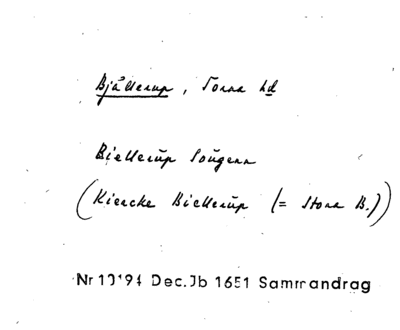 Bjällerup, Torna hd
Biellerūp Sougenn
(Kiercke Biellerūp (= Stora B.))
Nr 10194 Dec.Jb 1651 Sammandrag